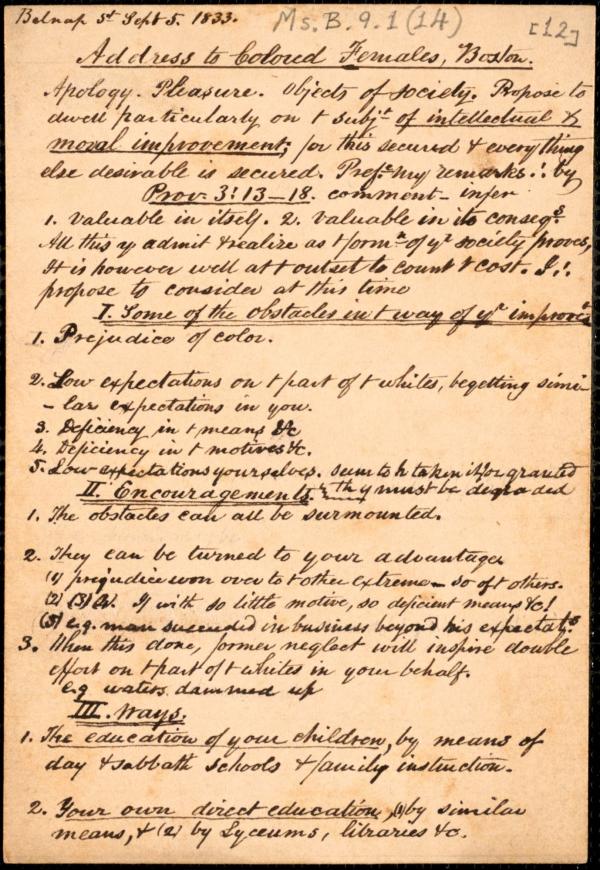 Belnap St Sept 5. 1833.
Ms. B. 9. 1 (14)
[12]
Address to Colored Females, Boston.
Apology. Pleasure. Objects of society. Propose to
dwell particularly on t subjt. of intellectual &
moral improvement; for this secured & everything
else desirable is secured. Prefe my remarks ∴ by
Prov. 3: 13–18. comment – infer
1. valuable in itself. 2. valuable in its conseqs.
All this y admit & realize as t formn of yr society proves,
It is however well at t outset to count t cost. I ∴
propose to consider at this time
I. Some of the obstacles in t way of yr improvet
1. Prejudice of color.
2. Low expectations on t part of t whites, begetting simi-
-lar expectations in you.
3. Deficiency in t means &c
4. Deficiency in t motives &c.
5. Low expectations yourselves. seems to h taken it for granted
II. Encouragements. tht y must be degraded
1. The obstacles can all be surmounted.
2. They can be turned to your advantage
(1) prejudice won over to t other extreme – so of t others.
(2) (3) If with so little motive, so deficient means &c!
(5) e.g. man succeeded in business beyond his expectats.
3. When this done, former neglect will inspire double
effort on t part of t whites in your behalf.
e.g waters dammed up
III. Ways.
1. The education of your children, by means of
day & sabbath schools & family instruction.
2. Your own direct education, (1) by similar
means, & (2) by Lyceums, libraries &c.